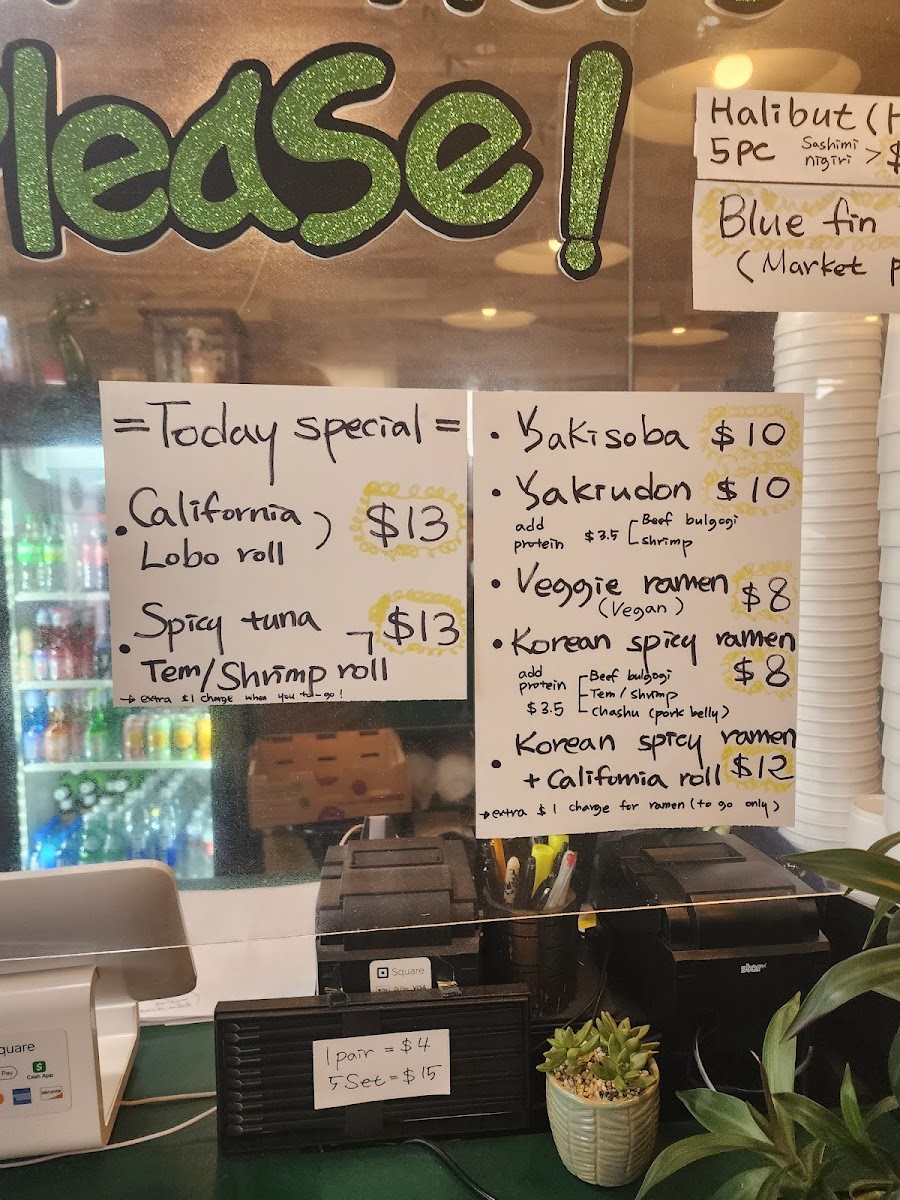 Please!
Halibut (H
5pc Sashimi nigiri > $
Blue fin
(Market p
=Today special=
• California Lobo roll ) $13
• Spicy tuna Tem/Shrimp roll $13
→ extra $1 charge when you to-go!
• Yakisoba $10
• Yakiudon $10
add protein $3.5 Beef bulgogi
shrimp
• Veggie ramen $8
(Vegan)
• Korean spicy ramen $8
add protein $3.5 Beef bulgogi
Tem/shrimp
chashu (pork belly)
• Korean spicy ramen
+ California roll $12
→ extra $1 charge for ramen (to go only)
Square
VISA
star
1 pair = $4
5 Set = $15
quare
Pay
Cash App